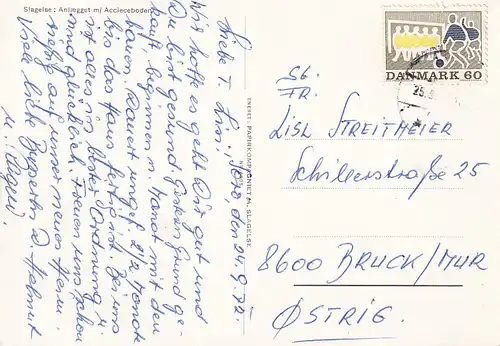 Slagelse: Anlægget m/ Acciseboden
Liebe T. Lisi, Sorø den 24.9.72.
Wir hoffe es geht Dir gut und
Du bist gesund. Gestern Grund ge-
kauft, beginnen n. Monat mit den
bauen. Dauert unget. 2 1/2 Monate
bis das Haus fertig ist. Bei uns
ist alles in bester Ordnung u.
sind glücklich. Freuen uns schon
riesig auf unser neues Heim.
Viele liebe Busserln D. Helmut
u.
ENERET: PAPIRKOMPAGNIET M. SLAGELSE
DANMARK 60
25.
Sg.
FR.
LISL STREITMEIER
Schillerstraße 25
8600 BRUCK/MUR
ØSTRIG.